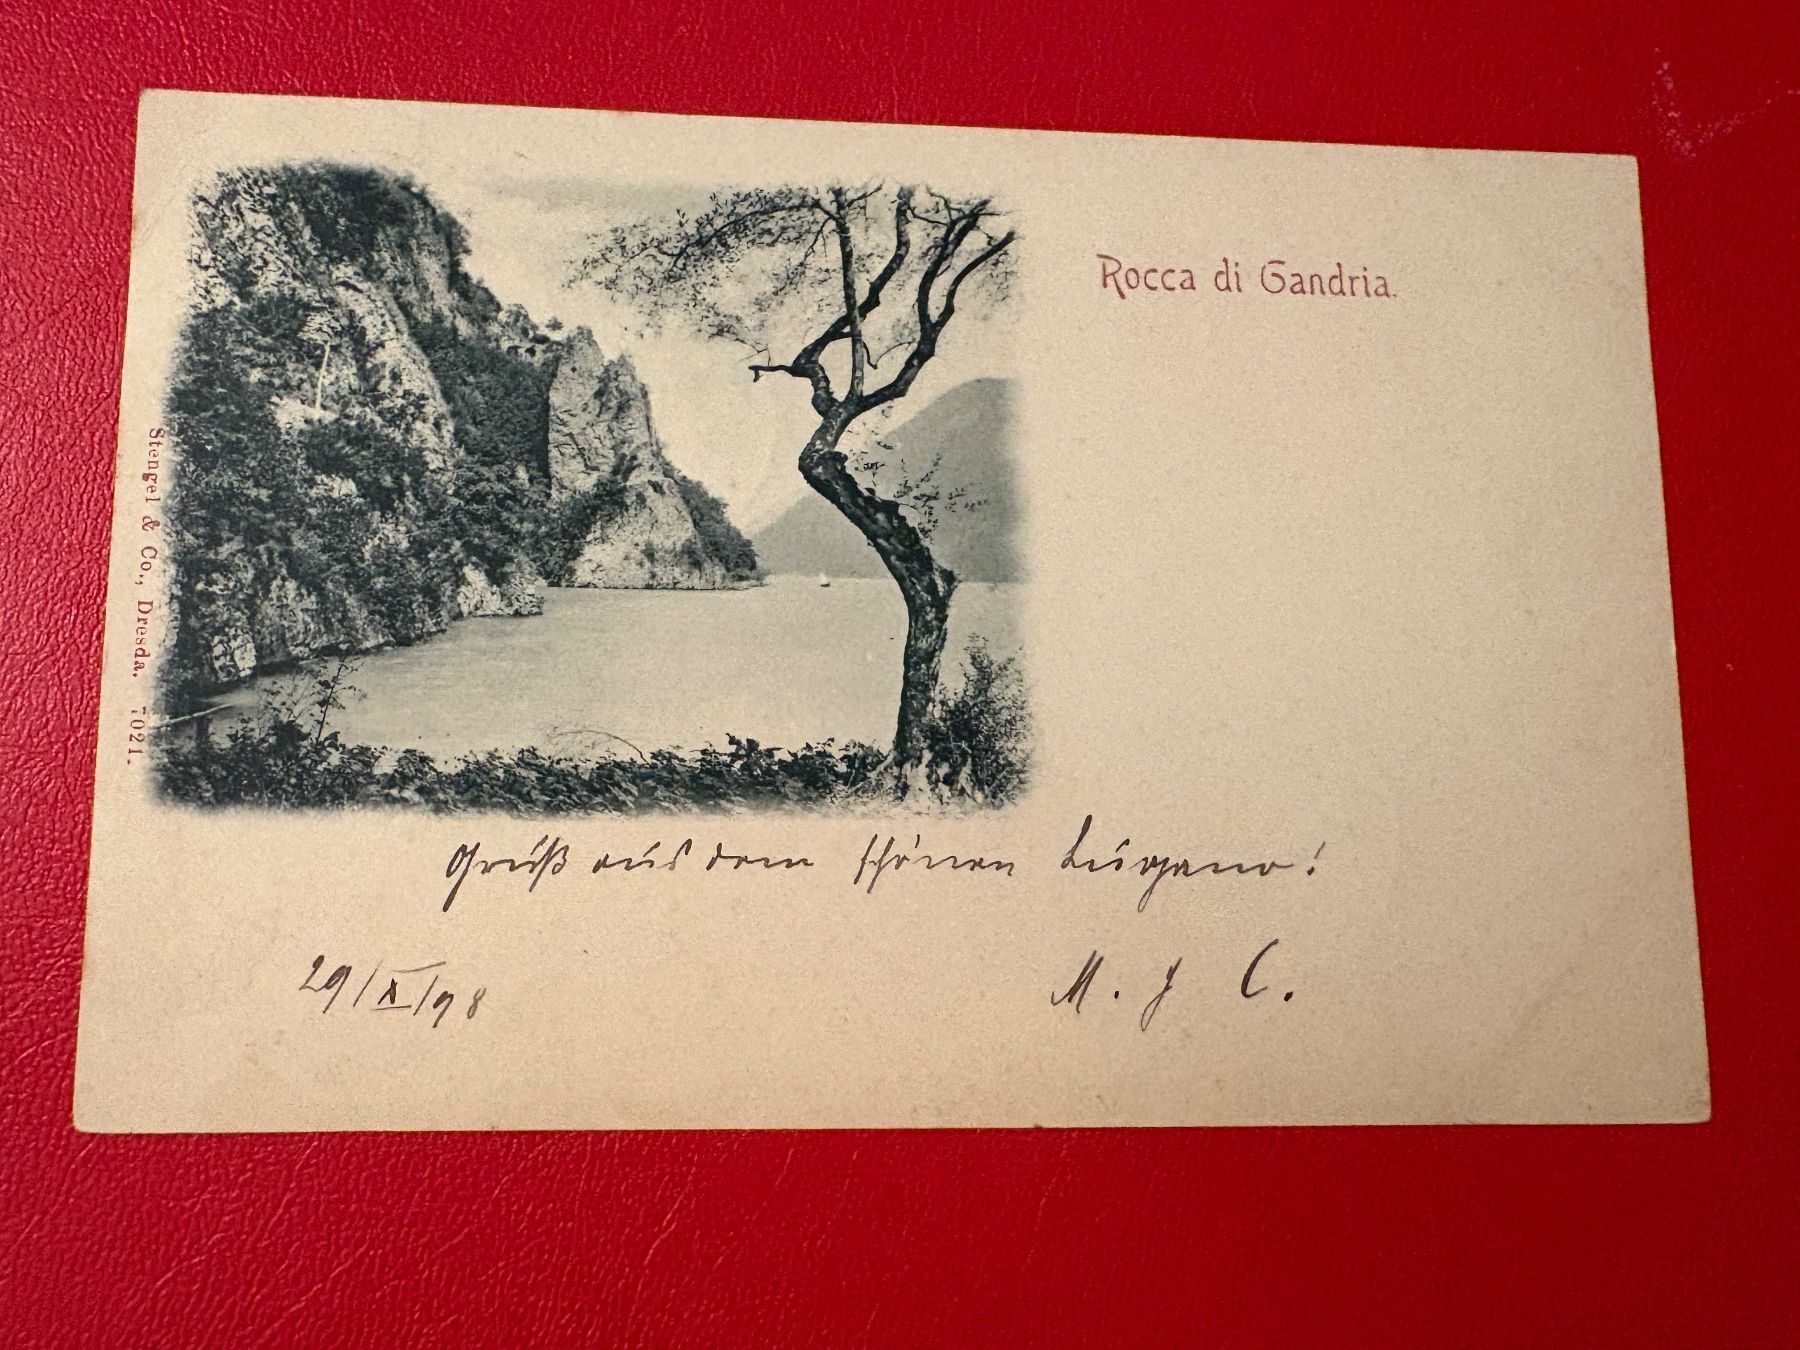 Rocca di Gandria.
Stengel & Co., Dresda. 7021.
Gruß aus dem schönen Lugano!
29/X/98
M. J C.